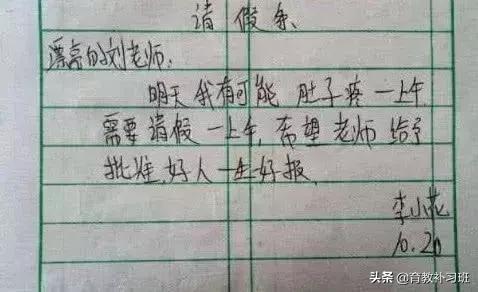 请假条
漂亮的刘老师:
明天我有可能肚子疼一上午
需要请假一上午,希望老师给予
批准,好人一生好报。
李小花
10.20
头条 @育教补习班